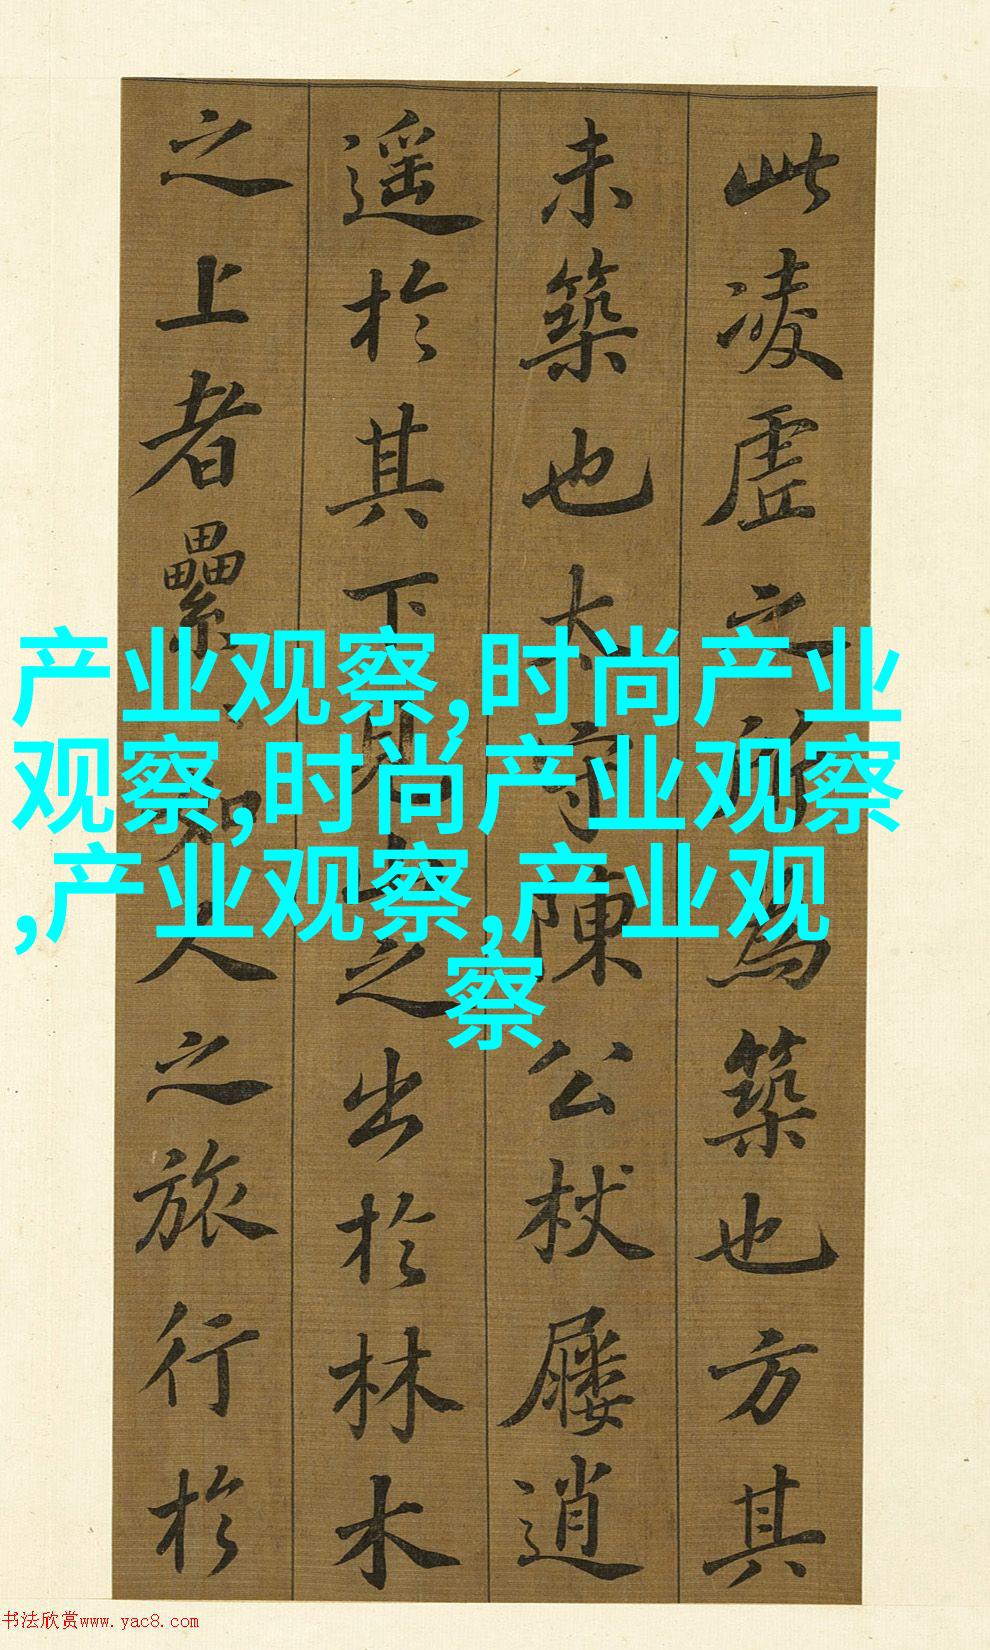 此凌虚之所為築也方其
未築也太守陳公杖屨逍
遥於其下見山之出於林木
之上者纍如人之旅行於
产业观察,时尚产业
观察,时尚产业观察
,产业观察,产业观
察
书法欣赏www.yac8.com